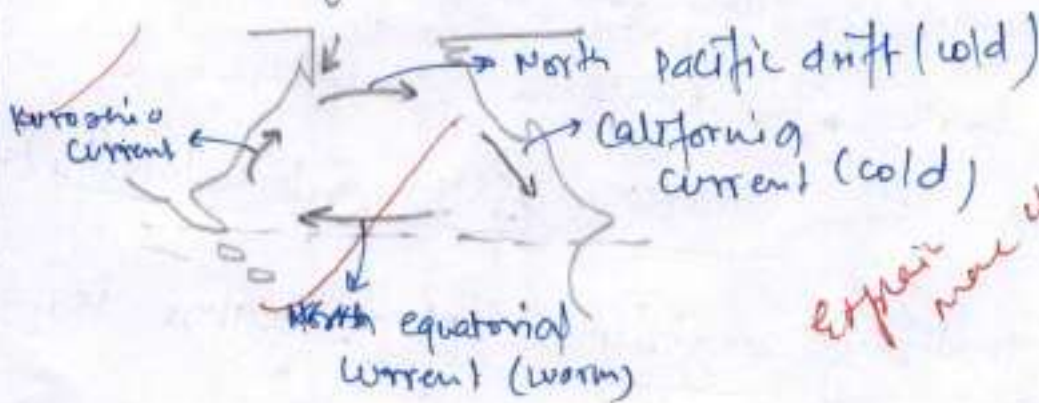 North pacific drift (cold)
Kuroshio
current
California
current (cold)
North equatorial
current (warm)
Explain
more